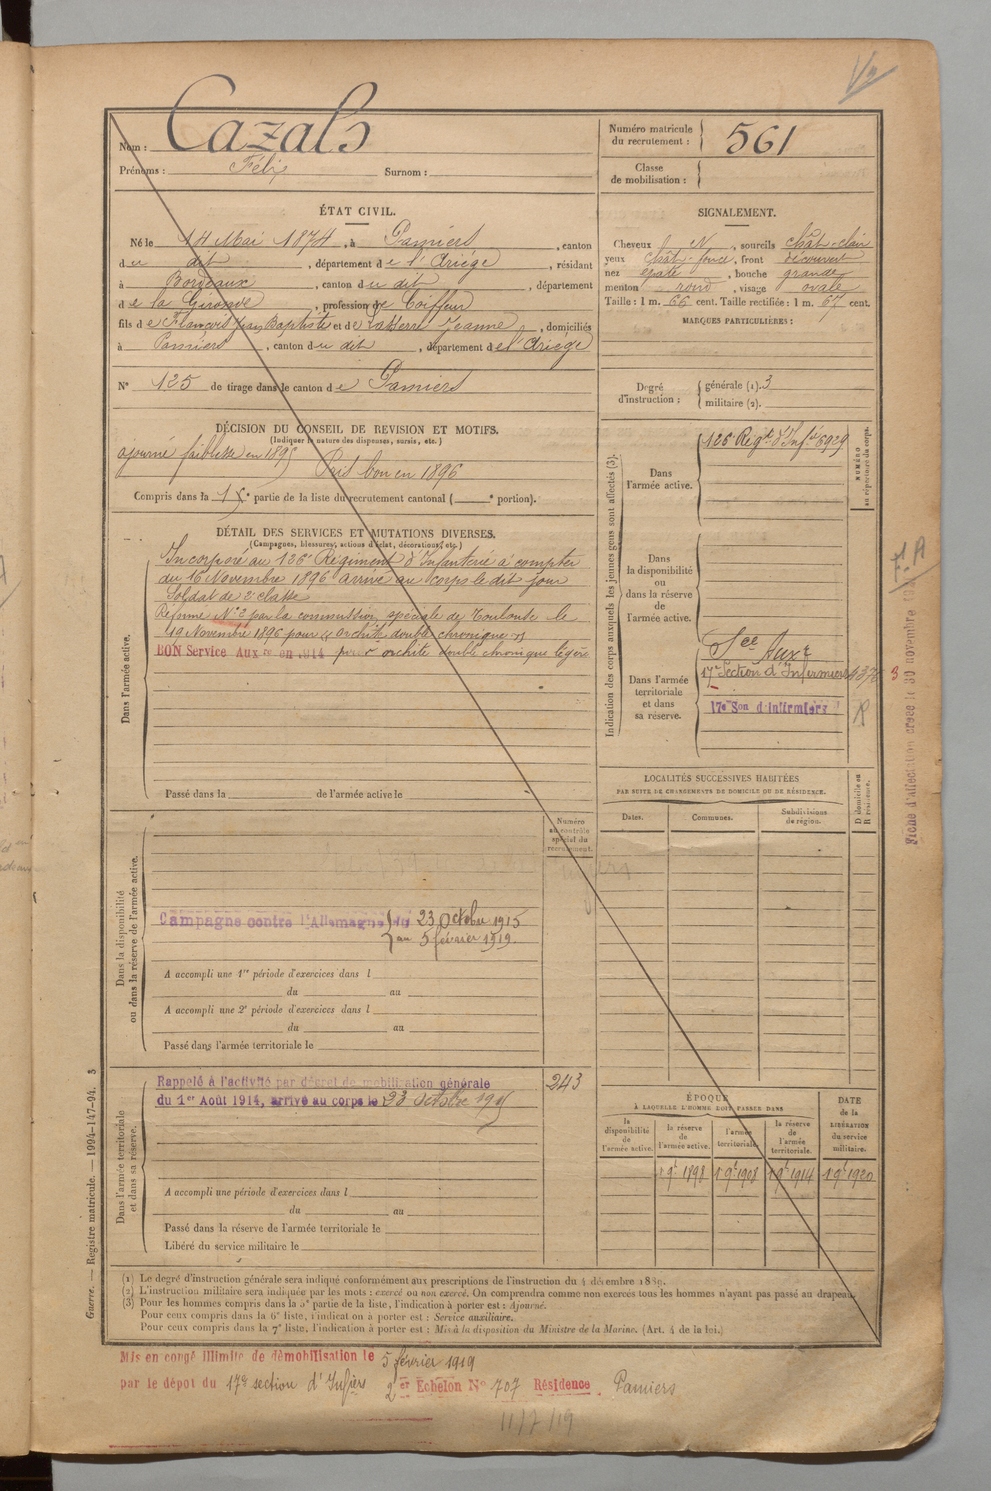 Nom : Cazals
Prénoms : Félix Surnom :
Numéro matricule du recrutement : 561
Classe de mobilisation :
ÉTAT CIVIL.
Né le 14 Mai 1874, à Pamiers, canton
du dit, département de l'Ariège, résidant
à Bordeaux, canton du dit, département
de la Gironde, profession de Coiffeur
fils de François Jean Baptiste et de Lasserre Jeanne, domiciliés
à Pamiers, canton du dit, département de l'Ariège
N° 125 de tirage dans le canton de Pamiers
SIGNALEMENT.
Cheveux N, sourcils chât-clair
yeux chât-foncé, front découvert
nez épaté, bouche grande
menton rond, visage ovale
Taille : 1 m. 66 cent. Taille rectifiée : 1 m. 67 cent.
MARQUES PARTICULIÈRES :
Degré d'instruction :
générale (1). 3
militaire (2).
DÉCISION DU CONSEIL DE REVISION ET MOTIFS.
(Indiquer la nature des dispenses, sursis, etc.)
ajourné faiblesse en 1895 Pris bon en 1896
Compris dans la partie de la liste du recrutement cantonal ( portion).
DÉTAIL DES SERVICES ET MUTATIONS DIVERSES.
(Campagnes, blessures, actions d'éclat, décorations, etc.)
Dans l'armée active.
Incorporé au 126e Régiment d'Infanterie à compter
du 16 Novembre 1896 arrivé au corps le dit jour
Soldat de 2e classe
Réformé N° 2 par la commission spéciale de Toulouse le
19 Novembre 1896 pour « orchite double chronique »
BON Service Auxre en 1914 pour orchite double chronique légère
Passé dans la de l'armée active le
Indication des corps auxquels les jeunes gens sont affectés (3).
NUMÉRO au répertoire du corps.
Dans l'armée active.
126 Régt d'Infie 6929
Dans la disponibilité ou dans la réserve de l'armée active.
Dans l'armée territoriale et dans sa réserve.
Sce Auxre
17e Section d'Infirmiers
17e Son d'Infirmiers
Fiche d'affectation
LOCALITÉS SUCCESSIVES HABITÉES
PAR SUITE DE CHANGEMENTS DE DOMICILE OU DE RÉSIDENCE.
Dates. Communes. Subdivisions de région. D domicile ou R résidence.
Numéro au contrôle spécial du recrutement.
Dans la disponibilité ou dans la réserve de l'armée active.
Campagne contre l'Allemagne du 23 Octobre 1915
au 5 février 1919.
A accompli une 1re période d'exercices dans l
du au
A accompli une 2e période d'exercices dans l
du au
Passé dans l'armée territoriale le
Dans l'armée territoriale et dans sa réserve.
Rappelé à l'activité par décret de mobilisation générale 243
du 1er Août 1914, arrivé au corps le 23 octobre 1915
A accompli une période d'exercices dans l
du au
Passé dans la réserve de l'armée territoriale le
Libéré du service militaire le
ÉPOQUE
À LAQUELLE L'HOMME DOIT PASSER DANS
la disponibilité de l'armée active.
la réserve de l'armée active.
l'armée territoriale.
la réserve de l'armée territoriale.
DATE de la LIBÉRATION du service militaire.
1 9e 1898 1 9e 1908 1 9e 1914 1 9e 1920
(1) Le degré d'instruction générale sera indiqué conformément aux prescriptions de l'instruction du 4 décembre 1889.
(2) L'instruction militaire sera indiquée par les mots : exercé ou non exercé. On comprendra comme non exercés tous les hommes n'ayant pas passé au drapeau.
(3) Pour les hommes compris dans la 5e partie de la liste, l'indication à porter est : Ajourné.
Pour ceux compris dans la 6e liste, l'indication à porter est : Service auxiliaire.
Pour ceux compris dans la 7e liste, l'indication à porter est : Mis à la disposition du Ministre de la Marine. (Art. 4 de la loi.)
Guerre. — Registre matricule. — 1994-147-94. 3
Mis en congé illimité de démobilisation le 5 février 1919
par le dépôt du 17e section d'Infières 2er Echelon N° 707 Résidence Pamiers
11/7/19